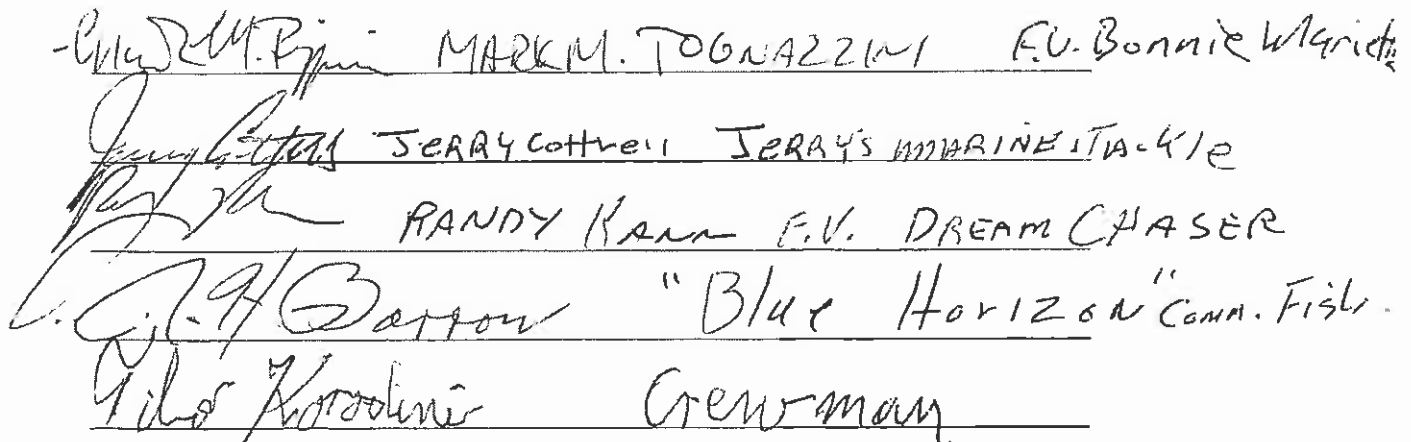 MARK M. TOGNAZZINI F.V. Bonnie Marietta
JERRY Cottrell JERRY'S MARINE & TACKle
RANDY KANN F.V. DREAM CHASER
H Barrow "Blue HorIZoN" Comm. Fish.
Tibor Crewman